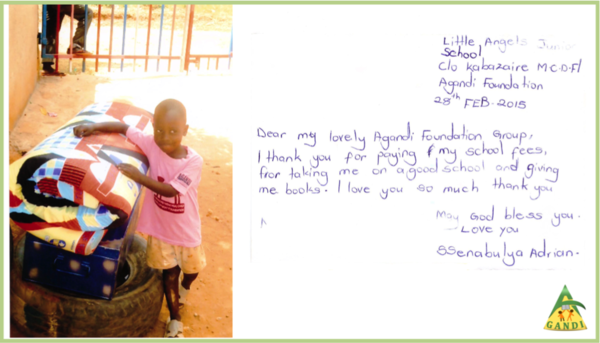 Little Angels Junior
School
C/o Kabazaire M.C.D.F/
Agandi Foundation
28th FEB. 2015
Dear my lovely Agandi Foundation Group,
I thank you for paying f my school fees,
fror taking me on a good school and giving
me books. I love you so much thank you
May God bless you.
Love you
SSenabulya Adrian.
A
GANDI